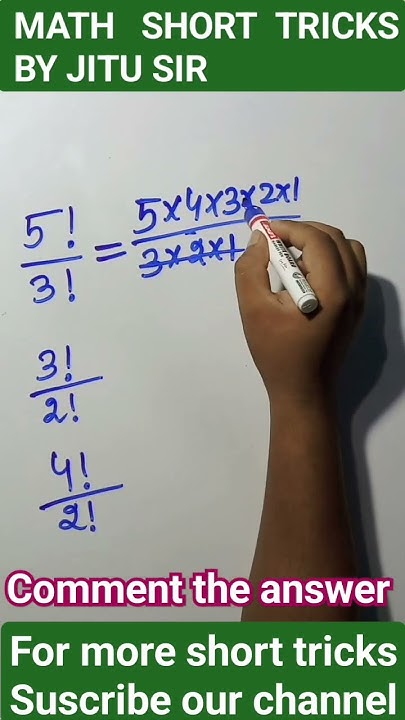 MATH SHORT TRICKS
BY JITU SIR
5!/3! = 5×4×3×2×1/3×2×1
3!/2!
4!/2!
Comment the answer
For more short tricks
Suscribe our channel